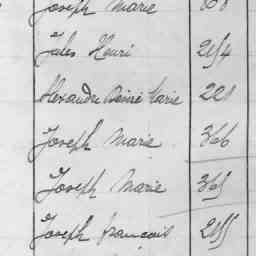 Joseph Marie
Jules Henri 254
Alexandre Désiré Marie 221
Joseph Marie 366
Joseph Marie 365
Joseph françois 255